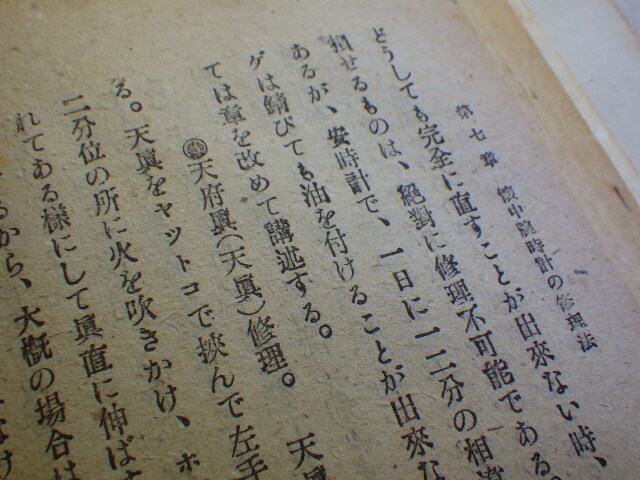 第七章 懷中腕時計の修理法
どうしても完全に直すことが出來ない時、
損せるものは、絕對に修理不可能である。
あるが、安時計で、一日に一二分の相違
ゲは錆びても油を付けることが出來な
ては章を改めて講述する。
天府眞(天眞)修理。 天眞
る。天眞をヤットコで挾んで左手
二分位の所に火を吹きかけ、ホ
れてある樣にして眞直に伸ばす
るから、大槪の場合は